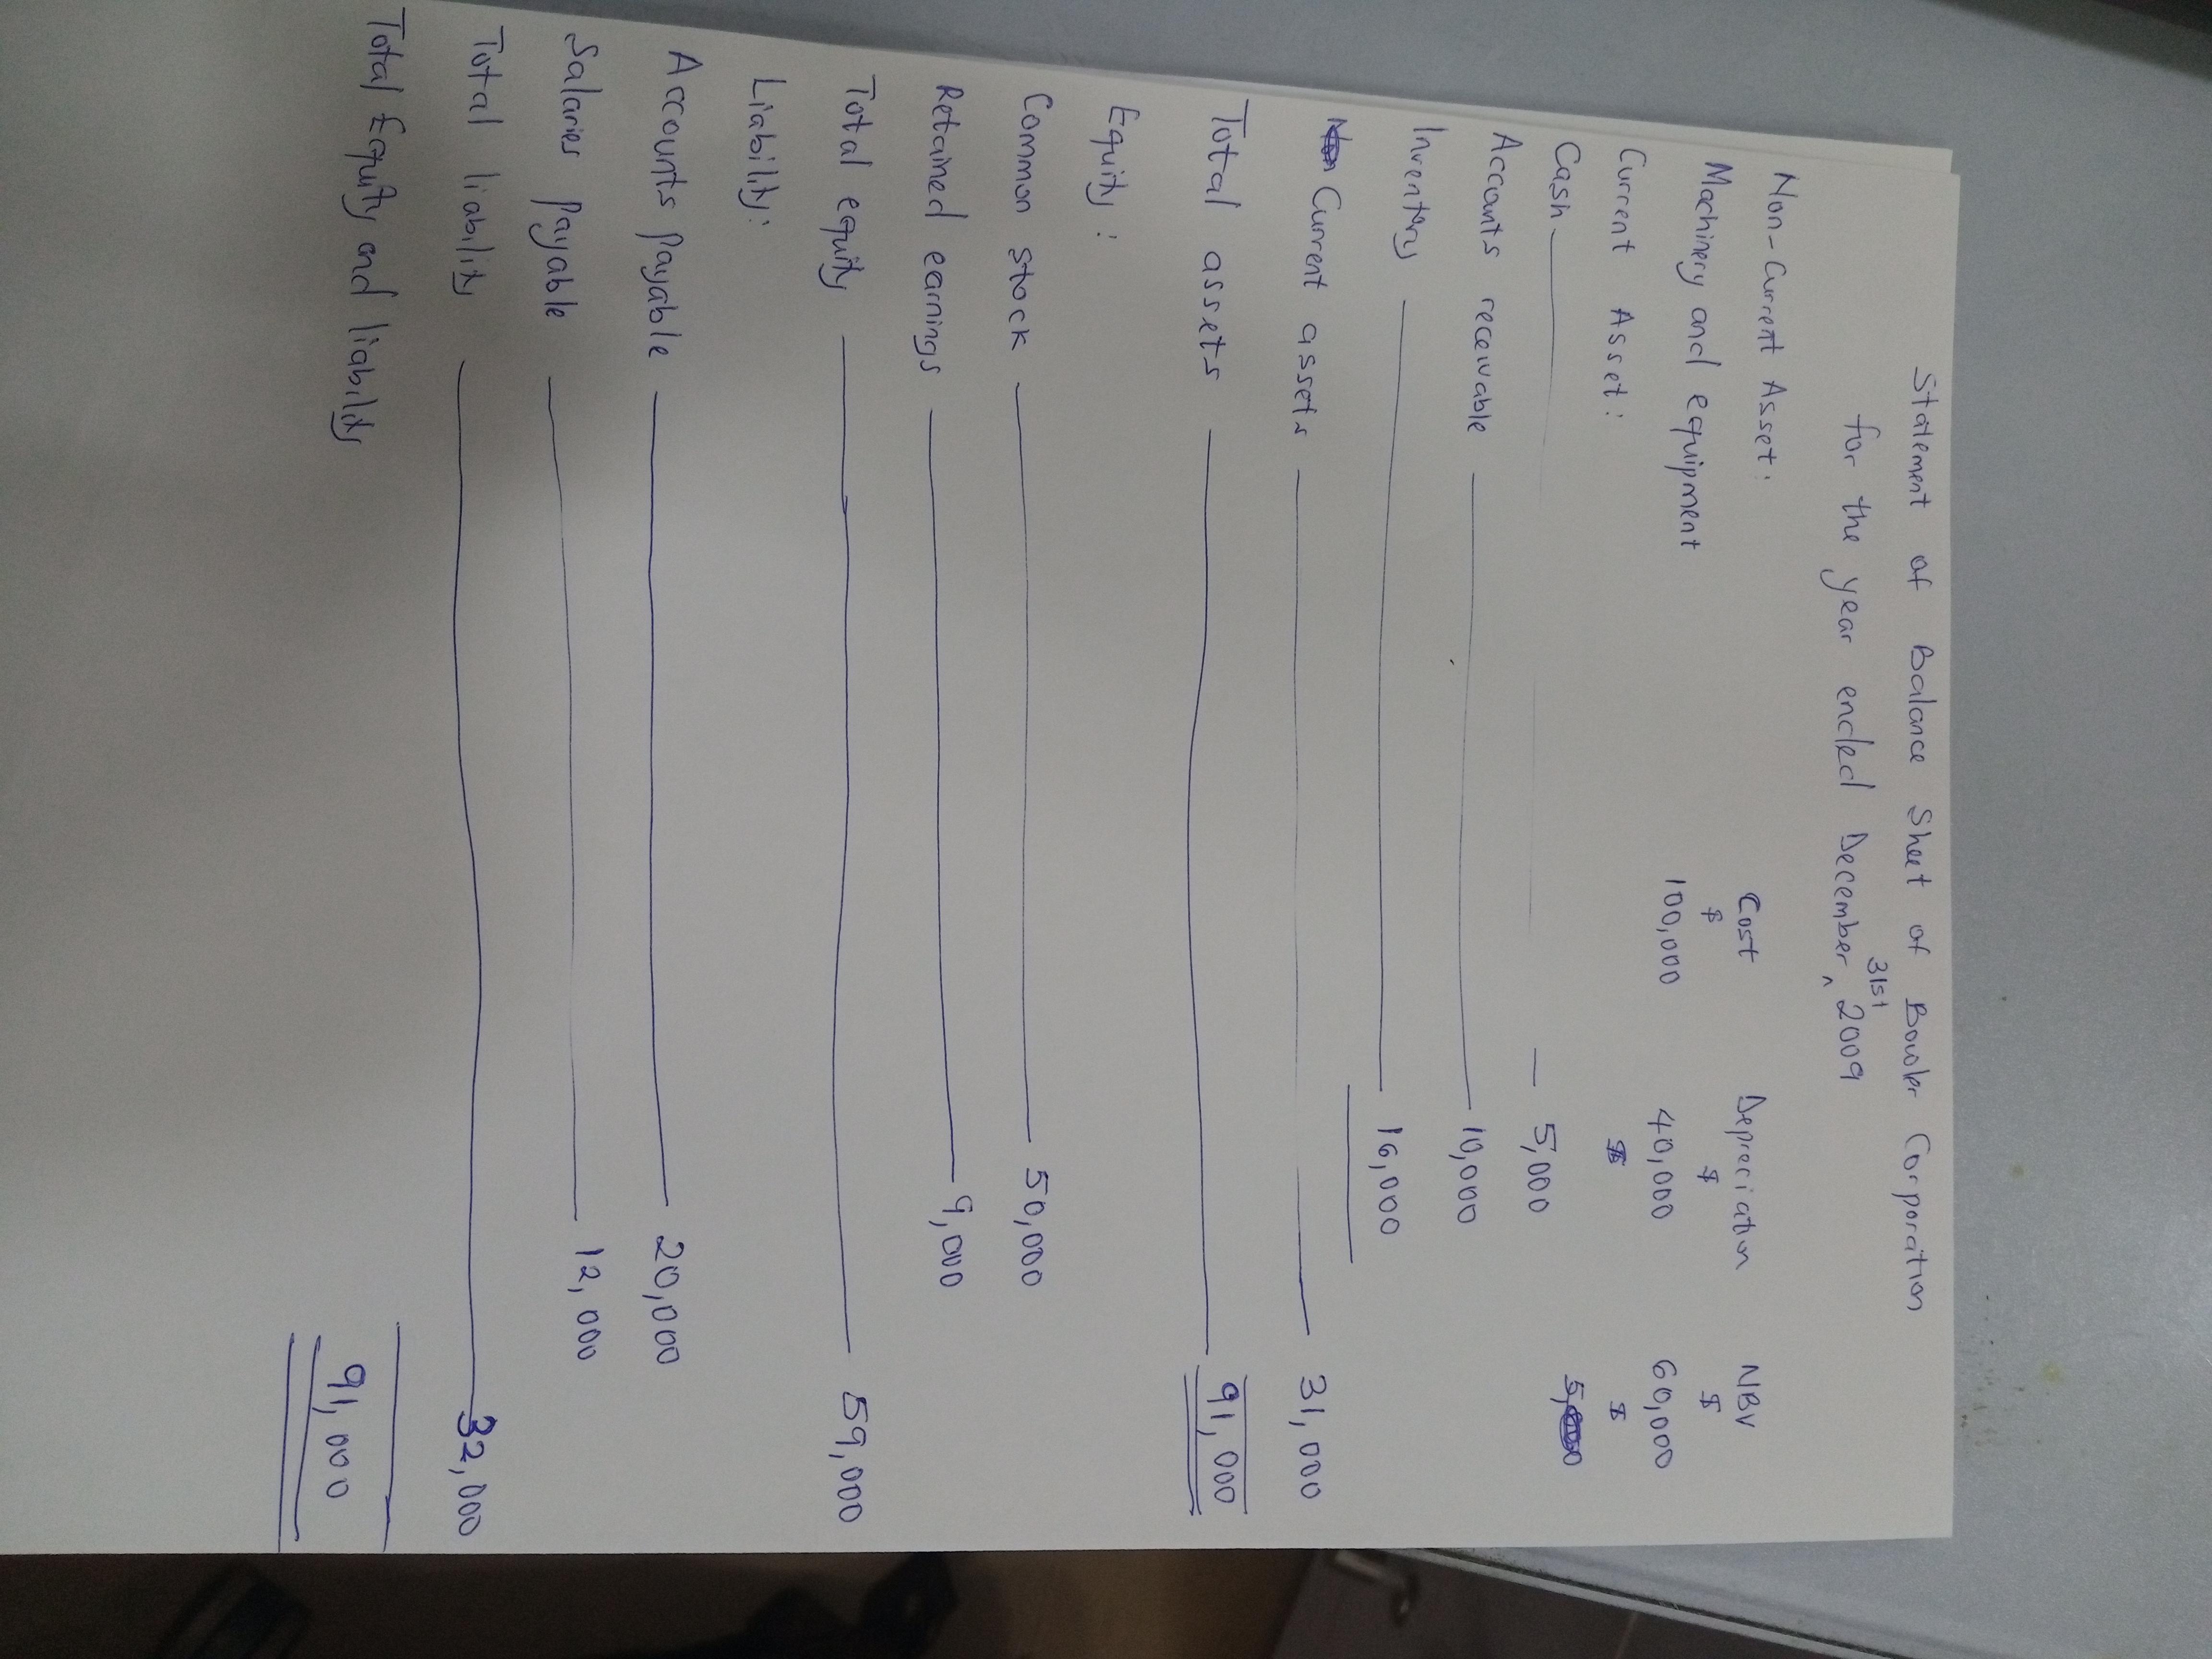 Statement of Balance Sheet of Bowler Corporation
for the year ended December 31st 2009
Non-Current Asset:
Cost Depreciation NBV
$ $ $
Machinery and equipment 100,000 40,000 60,000
Current Asset: $ $
Cash 5,000
Accounts receivable 10,000
Inventory 16,000
Current assets 31,000
Total assets 91,000
Equity:
Common stock 50,000
Retained earnings 9,000
Total equity 59,000
Liability:
Accounts Payable 20,000
Salaries Payable 12,000
Total liability 32,000
Total Equity and liability 91,000